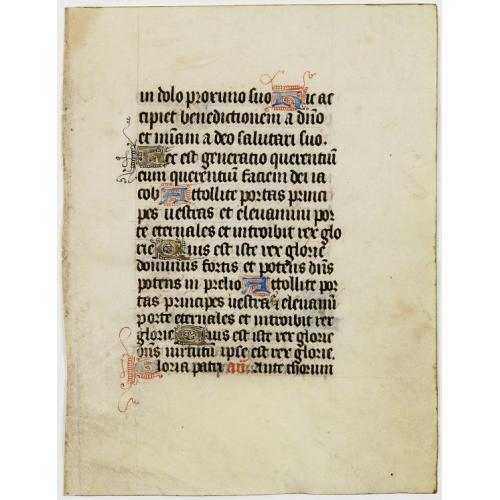 in dolo proximo suo Hic ac
cipiet benedictionem a dño
et miam a deo salutari suo.
Hec est generatio querentiũ
eum querentiũ faciem dei ia
cob Attollite portas princi
pes uestras et eleuamini por
te eternales et introibit rex glo
rie Quis est iste rex glorie
dominus fortis et potens dñs
potens in prelio Attollite por
tas principes uestras & eleuamĩ
porte eternales et introibit rex
glorie Quis est iste rex glorie
dñs uirtutũ ipse est rex glorie.
Gloria patri añ. Ante thorum